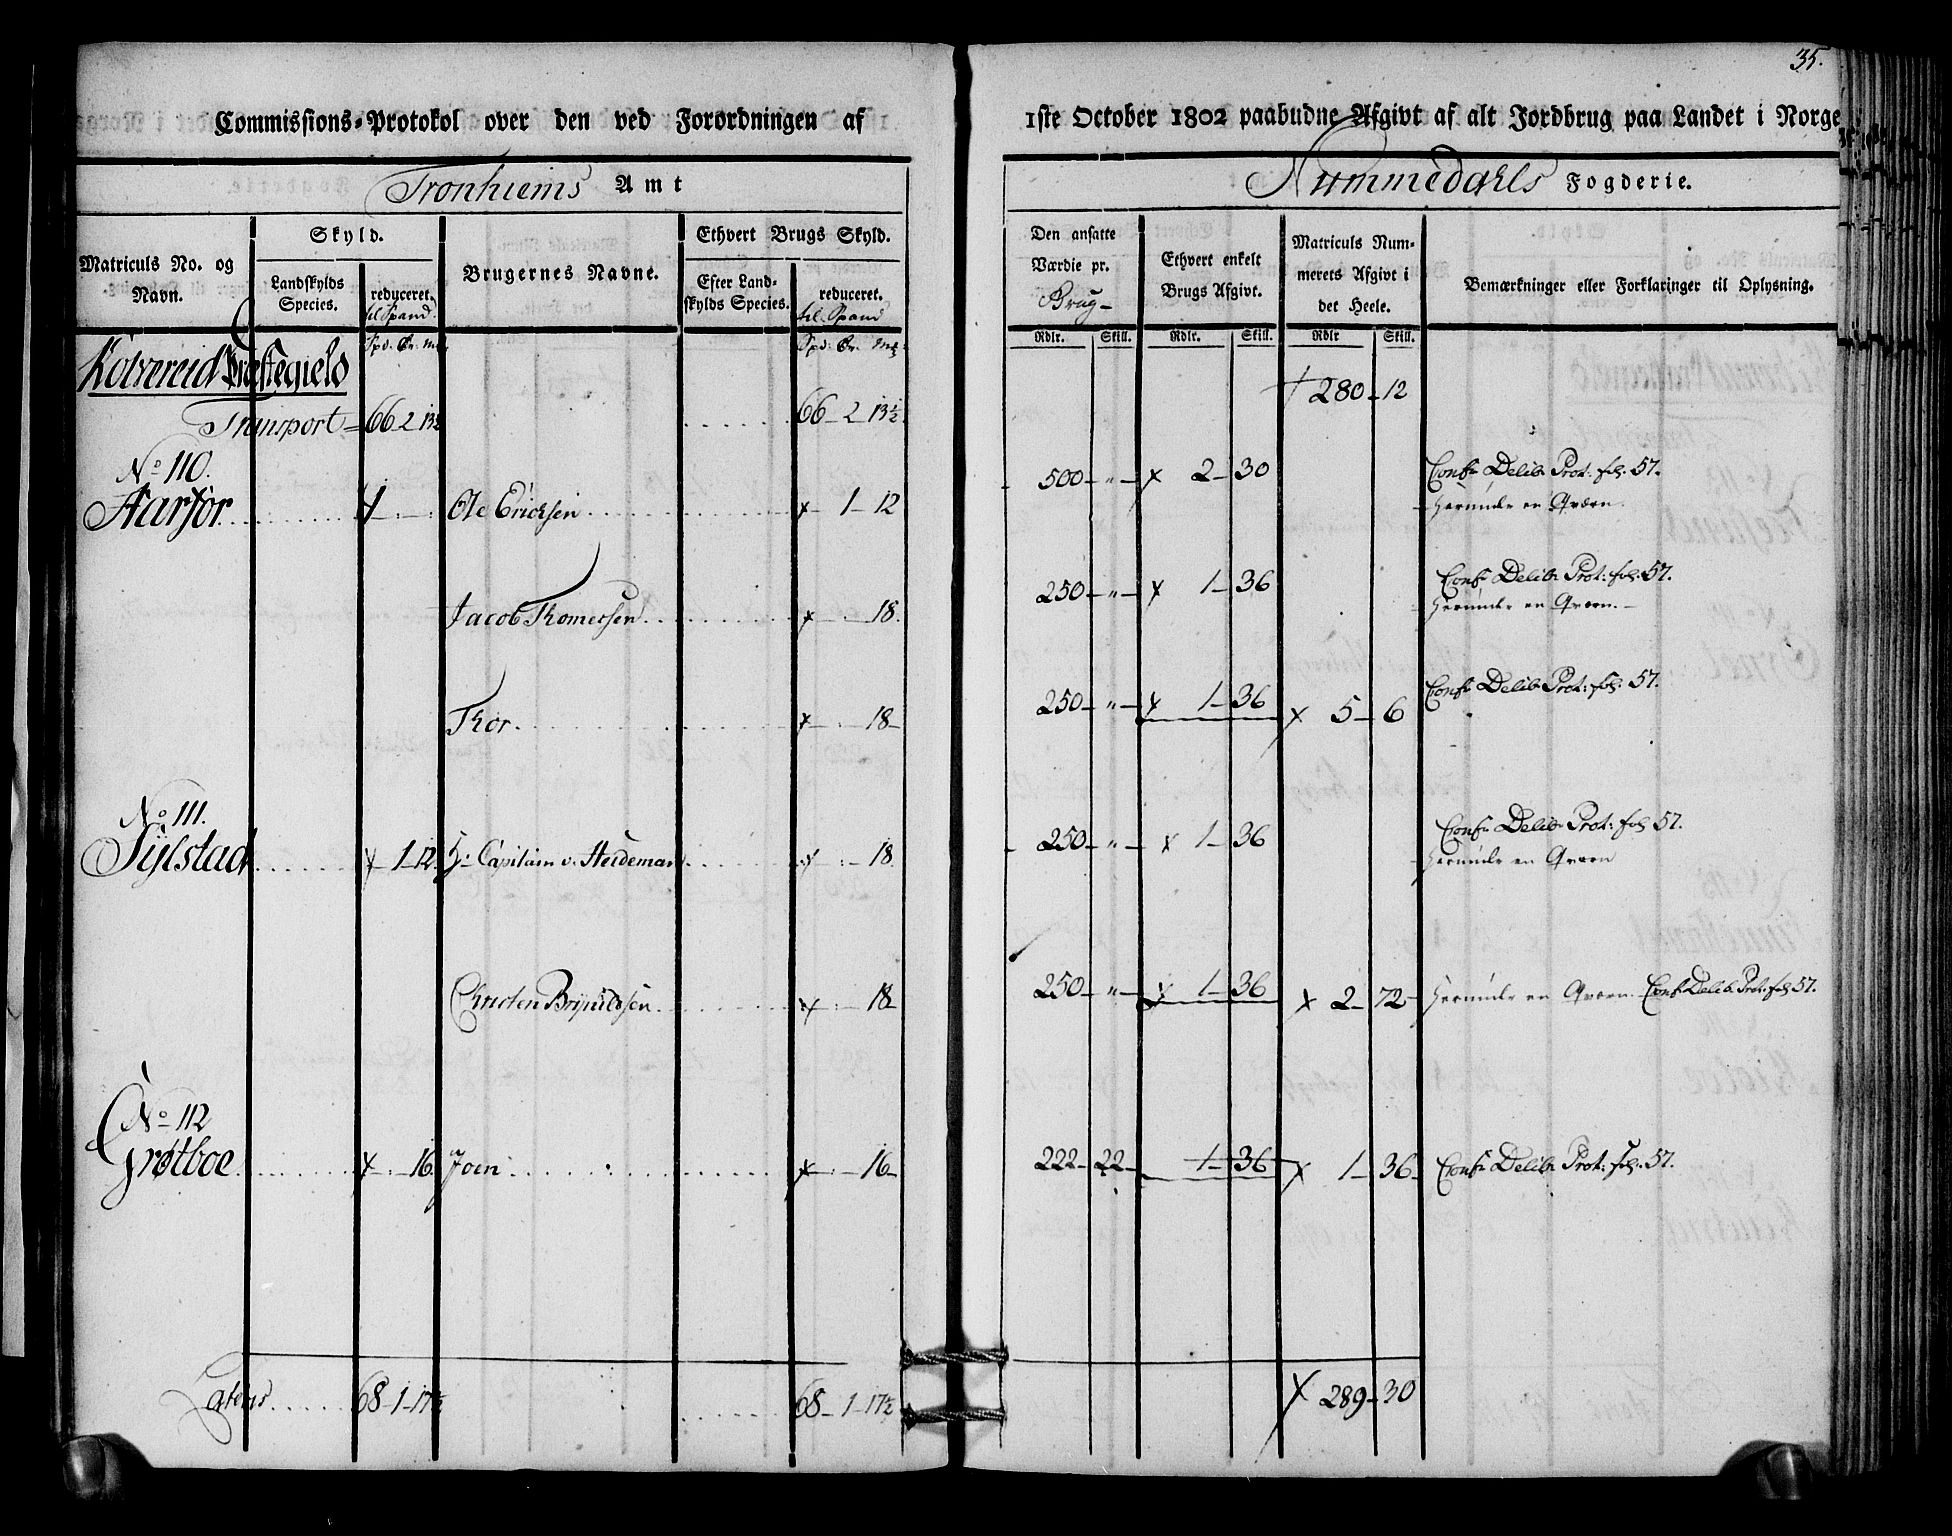 35.
Commissions-Protokol over den ved Forordningen af 1ste October 1802 paabudne Afgivt af alt Jordbrug paa Landet i Norge
Tronhiems Amt
Nummedahls Fogderie.
Matriculs No. og Navn.
Skyld.
Landskylds Species.
reduceret. til Spand
Brugernes Navne.
Ethvert Brugs Skyld.
Efter Landskylds Species.
reduceret. til Spand
Den ansatte Værdie pr. Brug
Ethvert enkelt Brugs Afgivt.
Matriculs Nummerets Afgivt i det Heele.
Bemærkninger eller Forklaringer til Oplysning.
Rdlr. Skill. Rdlr. Skill. Rdlr Skill.
Kolvereid Præstegield
Transport 66 2 13½ 66 - 2 13½ 280 - 12
No 110.
Aarfor 1 Ole Ericksen 1 - 12 500 - " - 2 - 30 Conf: Delib: Prot: fol: 57.
herunder en Qværn.
Jacob Thomessen 18. 250 - " - 1 - 36 Conf: Delib: Prot: fol: 57.
herunder en Qværn.
Thor 18 - 250 - " - 1 - 36 5 - 6 Conf: Delib: Prot: fol: 57.
No 111.
Sylstad 1 - 12 H: Capitain v. Heideman 18 250 - " - 1 - 36 Conf: Delib: Prot: fol 57.
herunder en Qværn
Christen 18 - 250 - " - 1 - 36 2 - 72 - herunder en Qværn. Conf: Delib: Prot: fol 57.
No 112
Grøtboe 16 Joen 16 - 222 - 22 - 1 - 36 1 - 36 Conf: Delib: Prot: fol: 57.
Lateris 68 - 1 - 17½ 68 - 1 - 17½ 289 - 30